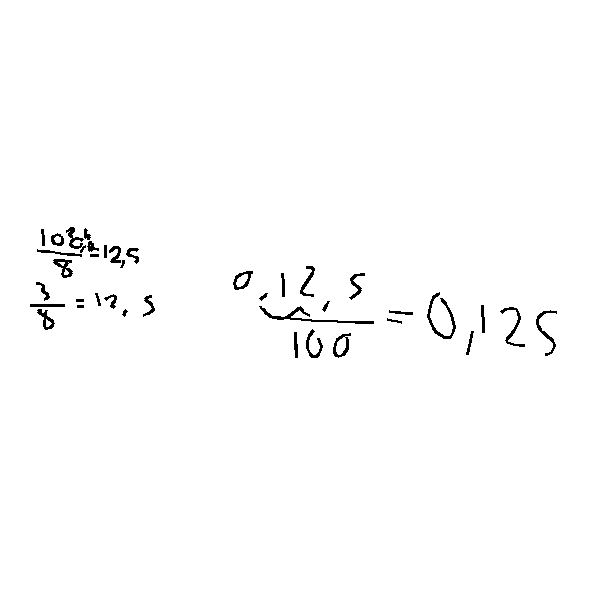 100/8 = 12,5
3/8 = 12,5
0,12,5/100 = 0,125